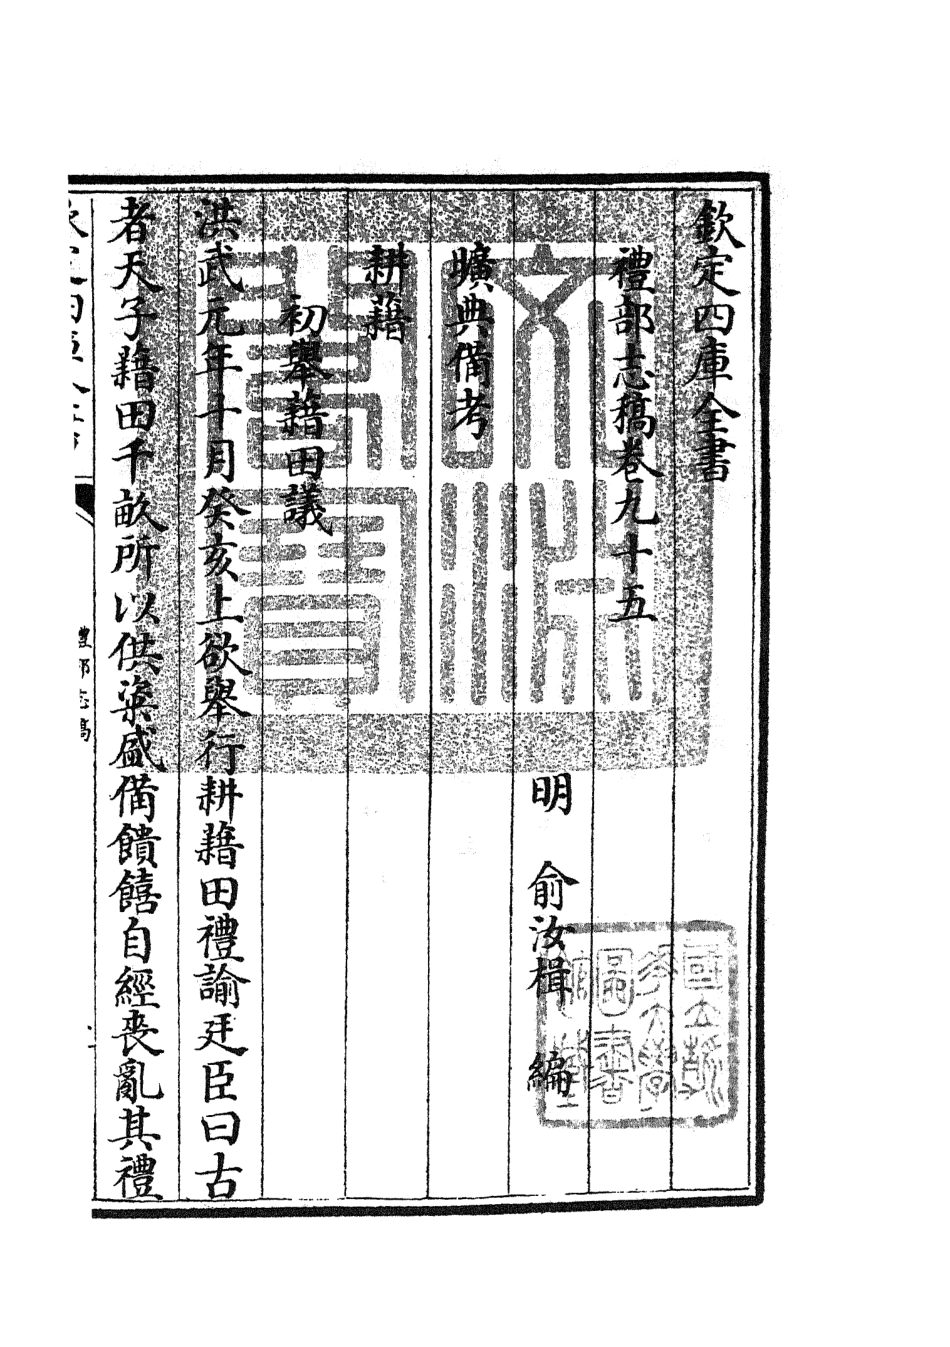 欽定四庫全書
禮部志稿卷九十五
明 俞汝楫 編
曠典備考
耕藉
初舉藉田議
洪武元年十月癸亥上欲舉行耕藉田禮諭廷臣曰古
者天子藉田千畝所以供粢盛備饋饎自經喪亂其禮
禮部志稿